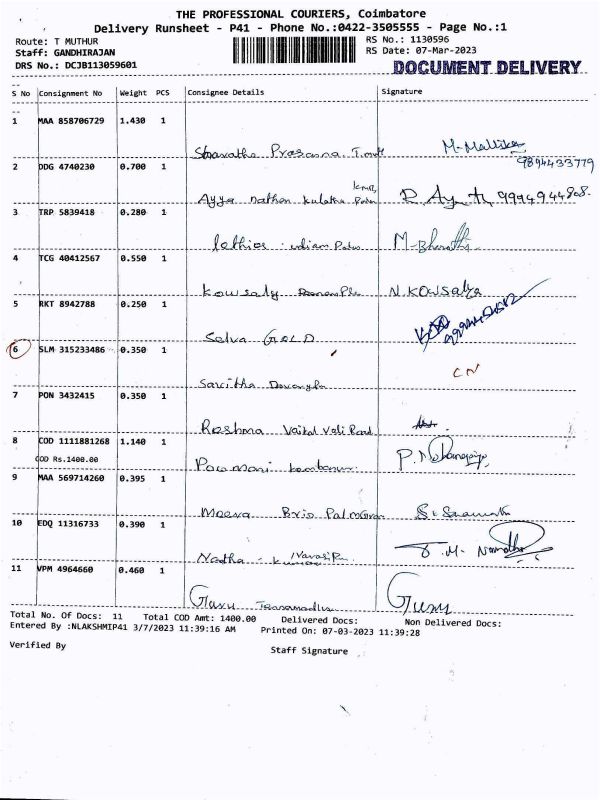 THE PROFESSIONAL COURIERS, Coimbatore
Delivery Runsheet - P41 - Phone No.:0422-3505555 - Page No.:1
Route: T MUTHUR
Staff: GANDHIRAJAN
DRS No.: DCJB113059601
RS No.: 1130596
RS Date: 07-Mar-2023
DOCUMENT DELIVERY
S No Consignment No Weight PCS Consignee Details Signature
1 MAA 858706729 1.430 1
Prasanna M-Mallika
9894433779
2 DDG 4740230 0.700 1
Ayya nathan 9994944808
3 TRP 5839418 0.280 1
M-Bharathi
4 TCG 40412567 0.550 1
Kowsaly N.KOWSalya
5 RKT 8942788 0.250 1
Selva GOLD
6 SLM 315233486 0.350 1
CN
Saritha
7 PON 3432415 0.350 1
Reshma Road
8 COD 1111881268 1.140 1
COD Rs.1400.00
9 MAA 569714260 0.395 1
Meera Brio
10 EDQ 11316733 0.390 1
Nadha
11 VPM 4964660 0.460 1
Guru Guru
Total No. Of Docs: 11 Total COD Amt: 1400.00 Delivered Docs: Non Delivered Docs:
Entered By :NLAKSHMIP41 3/7/2023 11:39:16 AM Printed On: 07-03-2023 11:39:28
Verified By Staff Signature